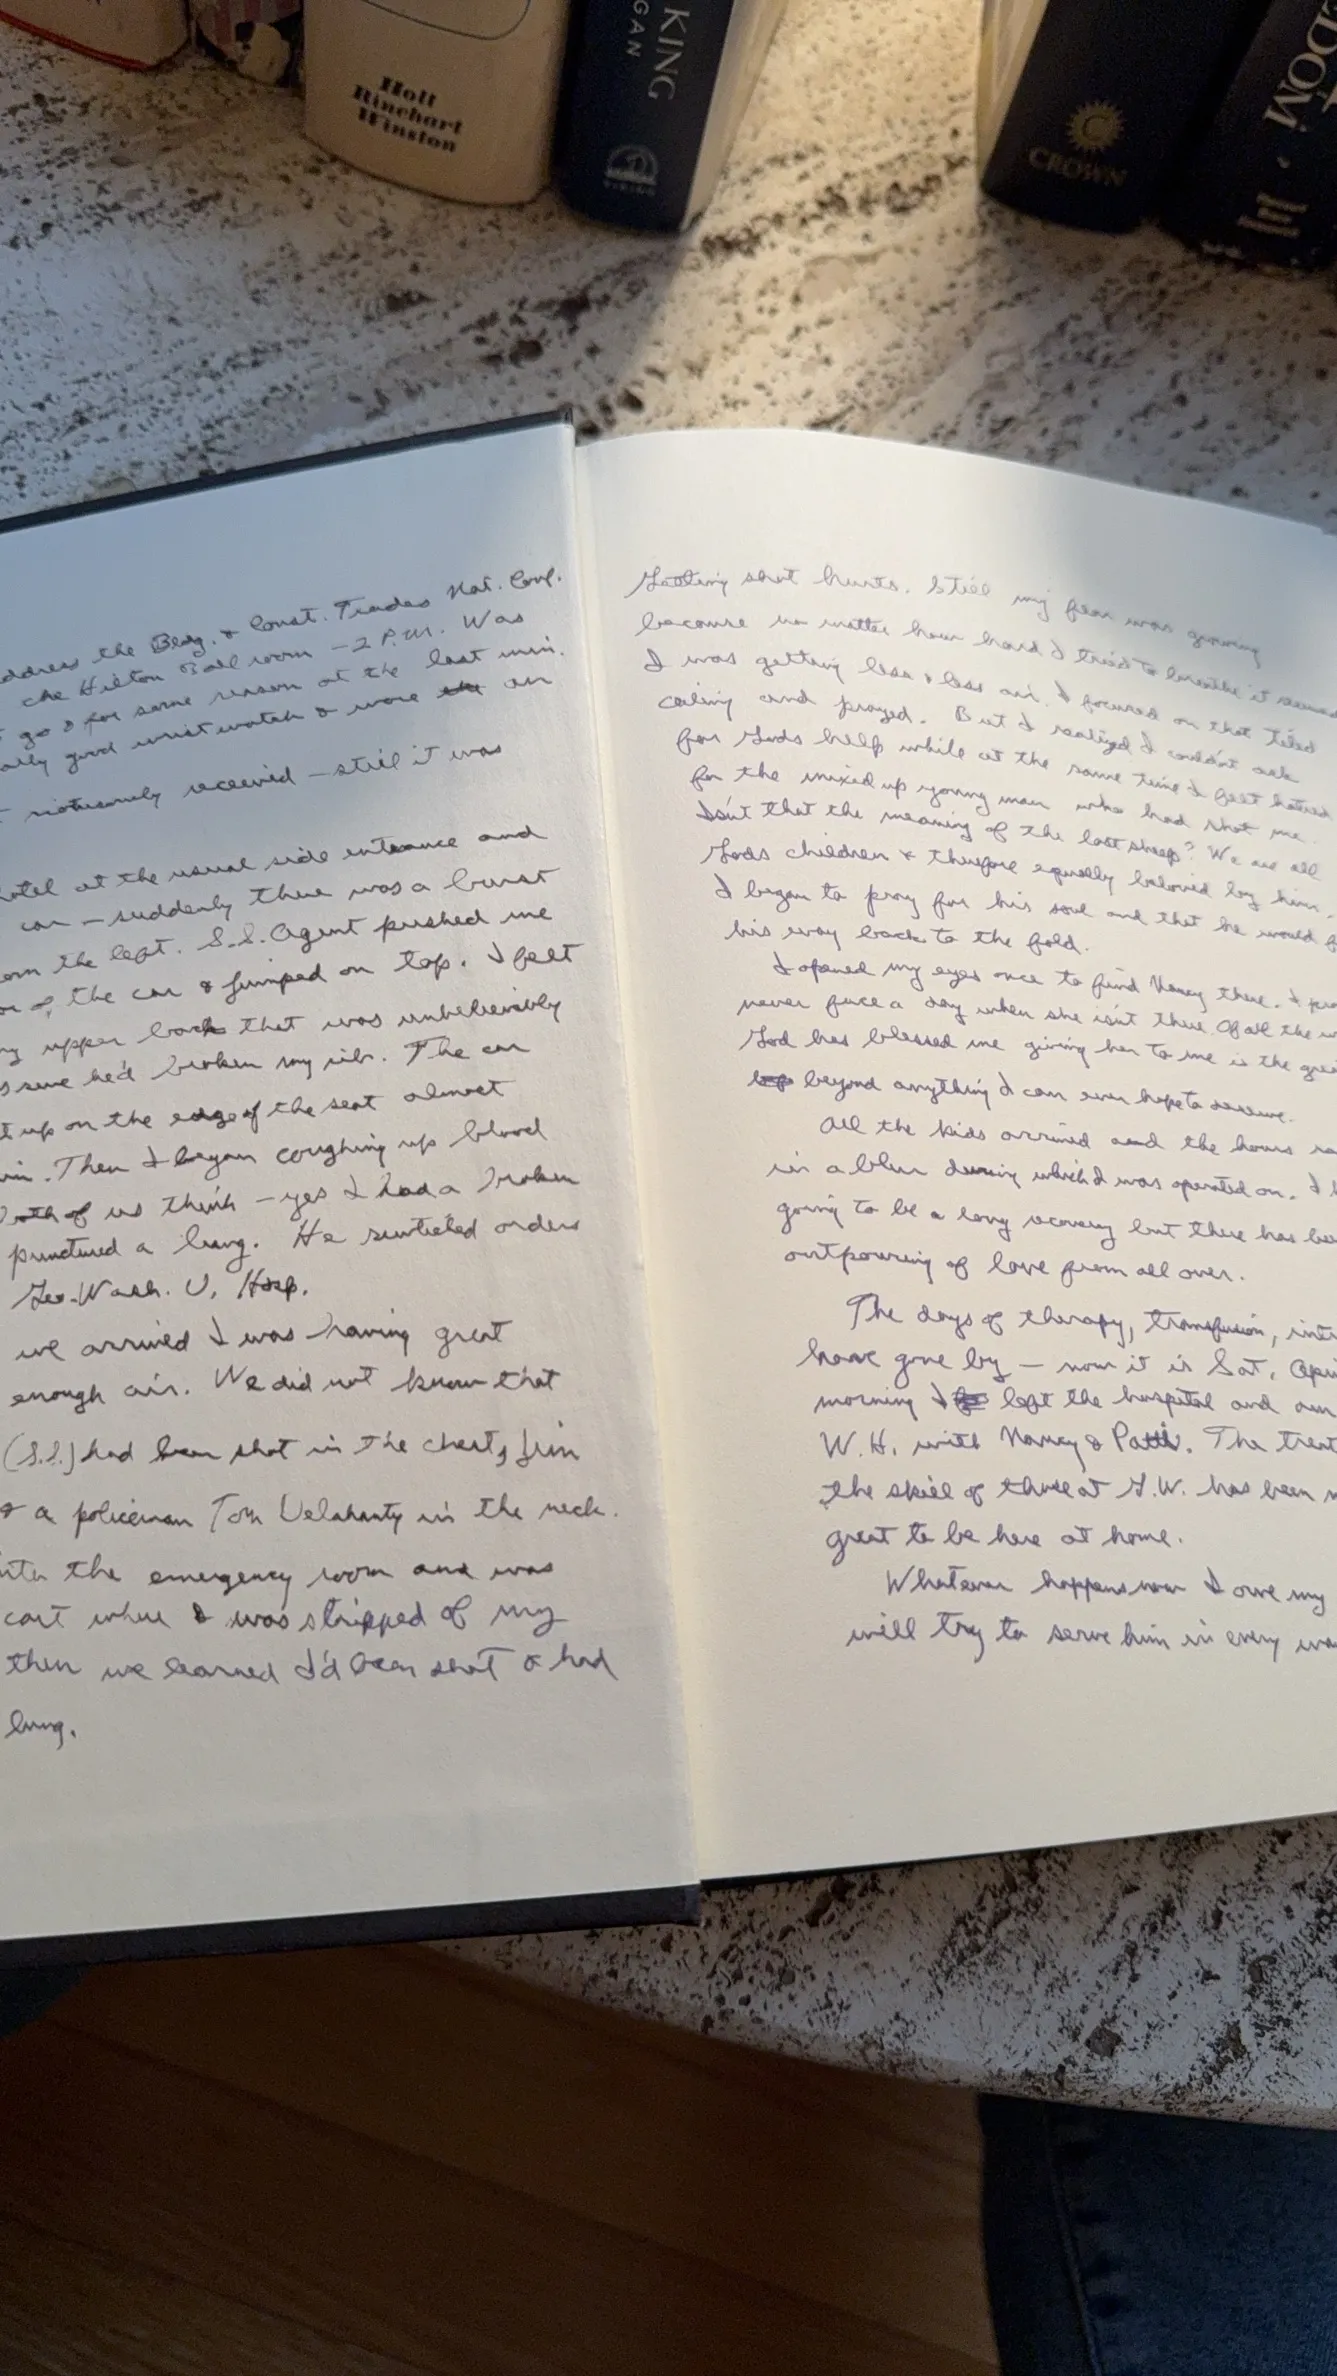 Holt
Rinehart
Winston
KING
GAN
VIKING
CROWN
EDOM
ddress the Bldg. & Const. Trades Nat. Conf.
the Hilton Ball room – 2 P.M. Was
go & for some reason at the last min.
ally good wrist watch & wore an
riotously received – still it was
otel at the usual side entrance and
car – suddenly there was a burst
om the left. S.S. Agent pushed me
or of the car & jumped on top. I felt
my upper back that was unbelievably
s sure he'd broken my rib. The car
t up on the edge of the seat almost
in. Then I began coughing up blood
both of us think – yes I had a broken
punctured a lung. He switched orders
Geo. Wash. U. Hosp.
we arrived I was having great
enough air. We did not know that
(S.S.) had been shot in the chest, Jim
& a policeman Tom Delahanty in the neck.
into the emergency room and was
cart where I was stripped of my
then we learned I'd been shot & had
lung.
Getting shot hurts. Still my fear was growing
because no matter how hard I tried to breathe it seemed
I was getting less & less air. I focused on that tiled
ceiling and prayed. But I realized I couldn't ask
for Gods help while at the same time I felt hatred
for the mixed up young man who had shot me.
Isn't that the meaning of the lost sheep? We are all
Gods children & therefore equally beloved by him.
I began to pray for his soul and that he would f
his way back to the fold.
I opened my eyes once to find Nancy there. I pra
never face a day when she isn't there. Of all the w
God has blessed me giving her to me is the grea
beyond anything I can ever hope to deserve.
All the kids arrived and the hours ra
in a blur during which I was operated on. I k
going to be a long recovery but there has bee
outpouring of love from all over.
The days of therapy, transfusion, intr
have gone by – now it is Sat. Apri
morning I left the hospital and am
W.H. with Nancy & Patti. The treat
the skill of those at G.W. has been m
great to be here at home.
Whatever happens now I owe my
will try to serve him in every wa